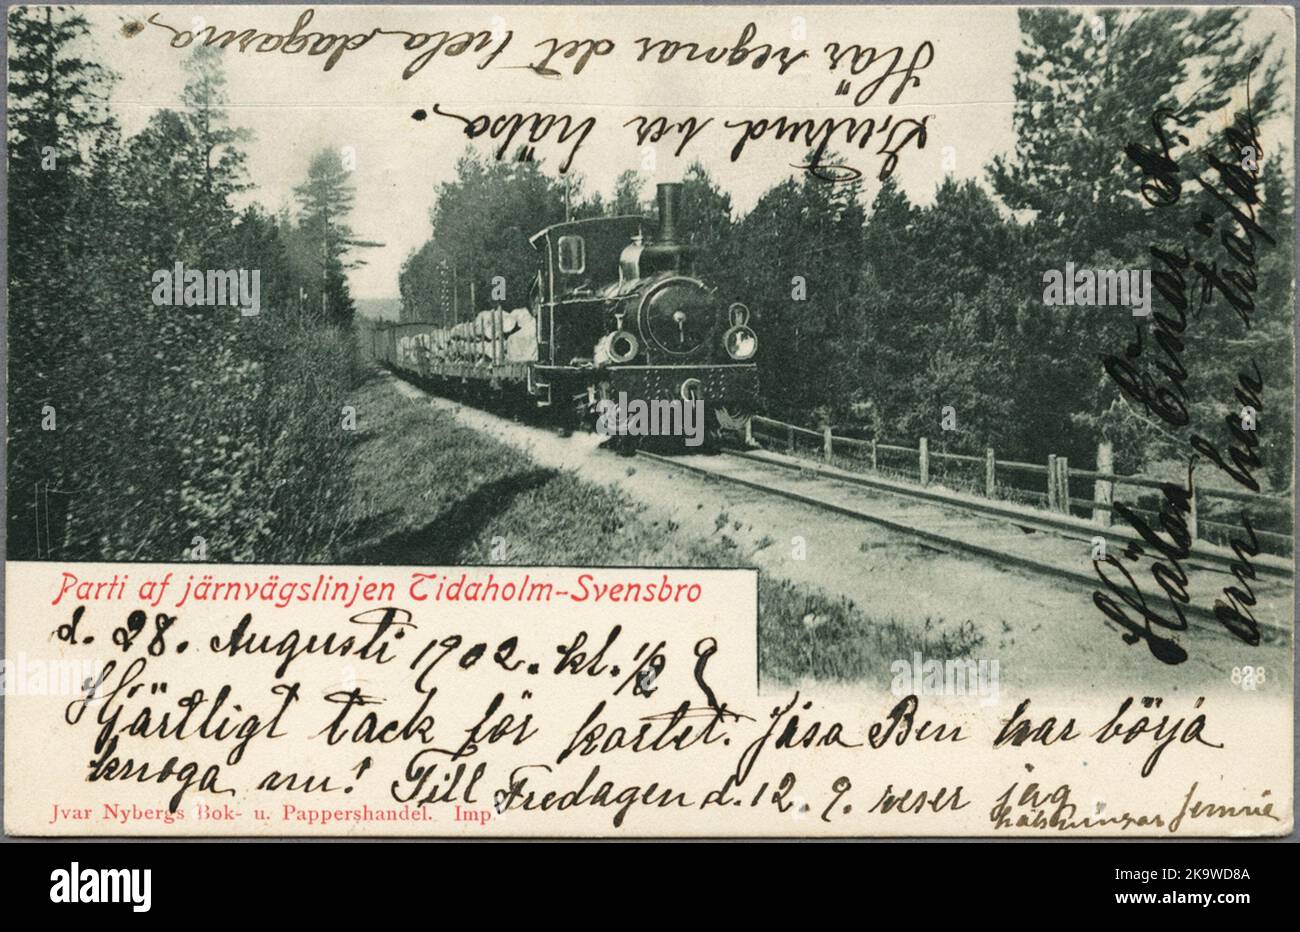 Här regnar det hela dagarna.
ber hälsa.
Hälsa Einar
om han träffden
Parti af järnvägslinjen Tidaholm-Svensbro
d. 28. Augusti 1902. kl. 1/2 9
828
Hjärtligt tack för kortet. Jåsa Ben har börja
knoga nu! Till Fredagen d. 12. 9. reser jag
hälsningar Jennie
Jvar Nybergs Bok- u. Pappershandel. Imp.
alamy
Image ID: 2K9WD8A
www.alamy.com